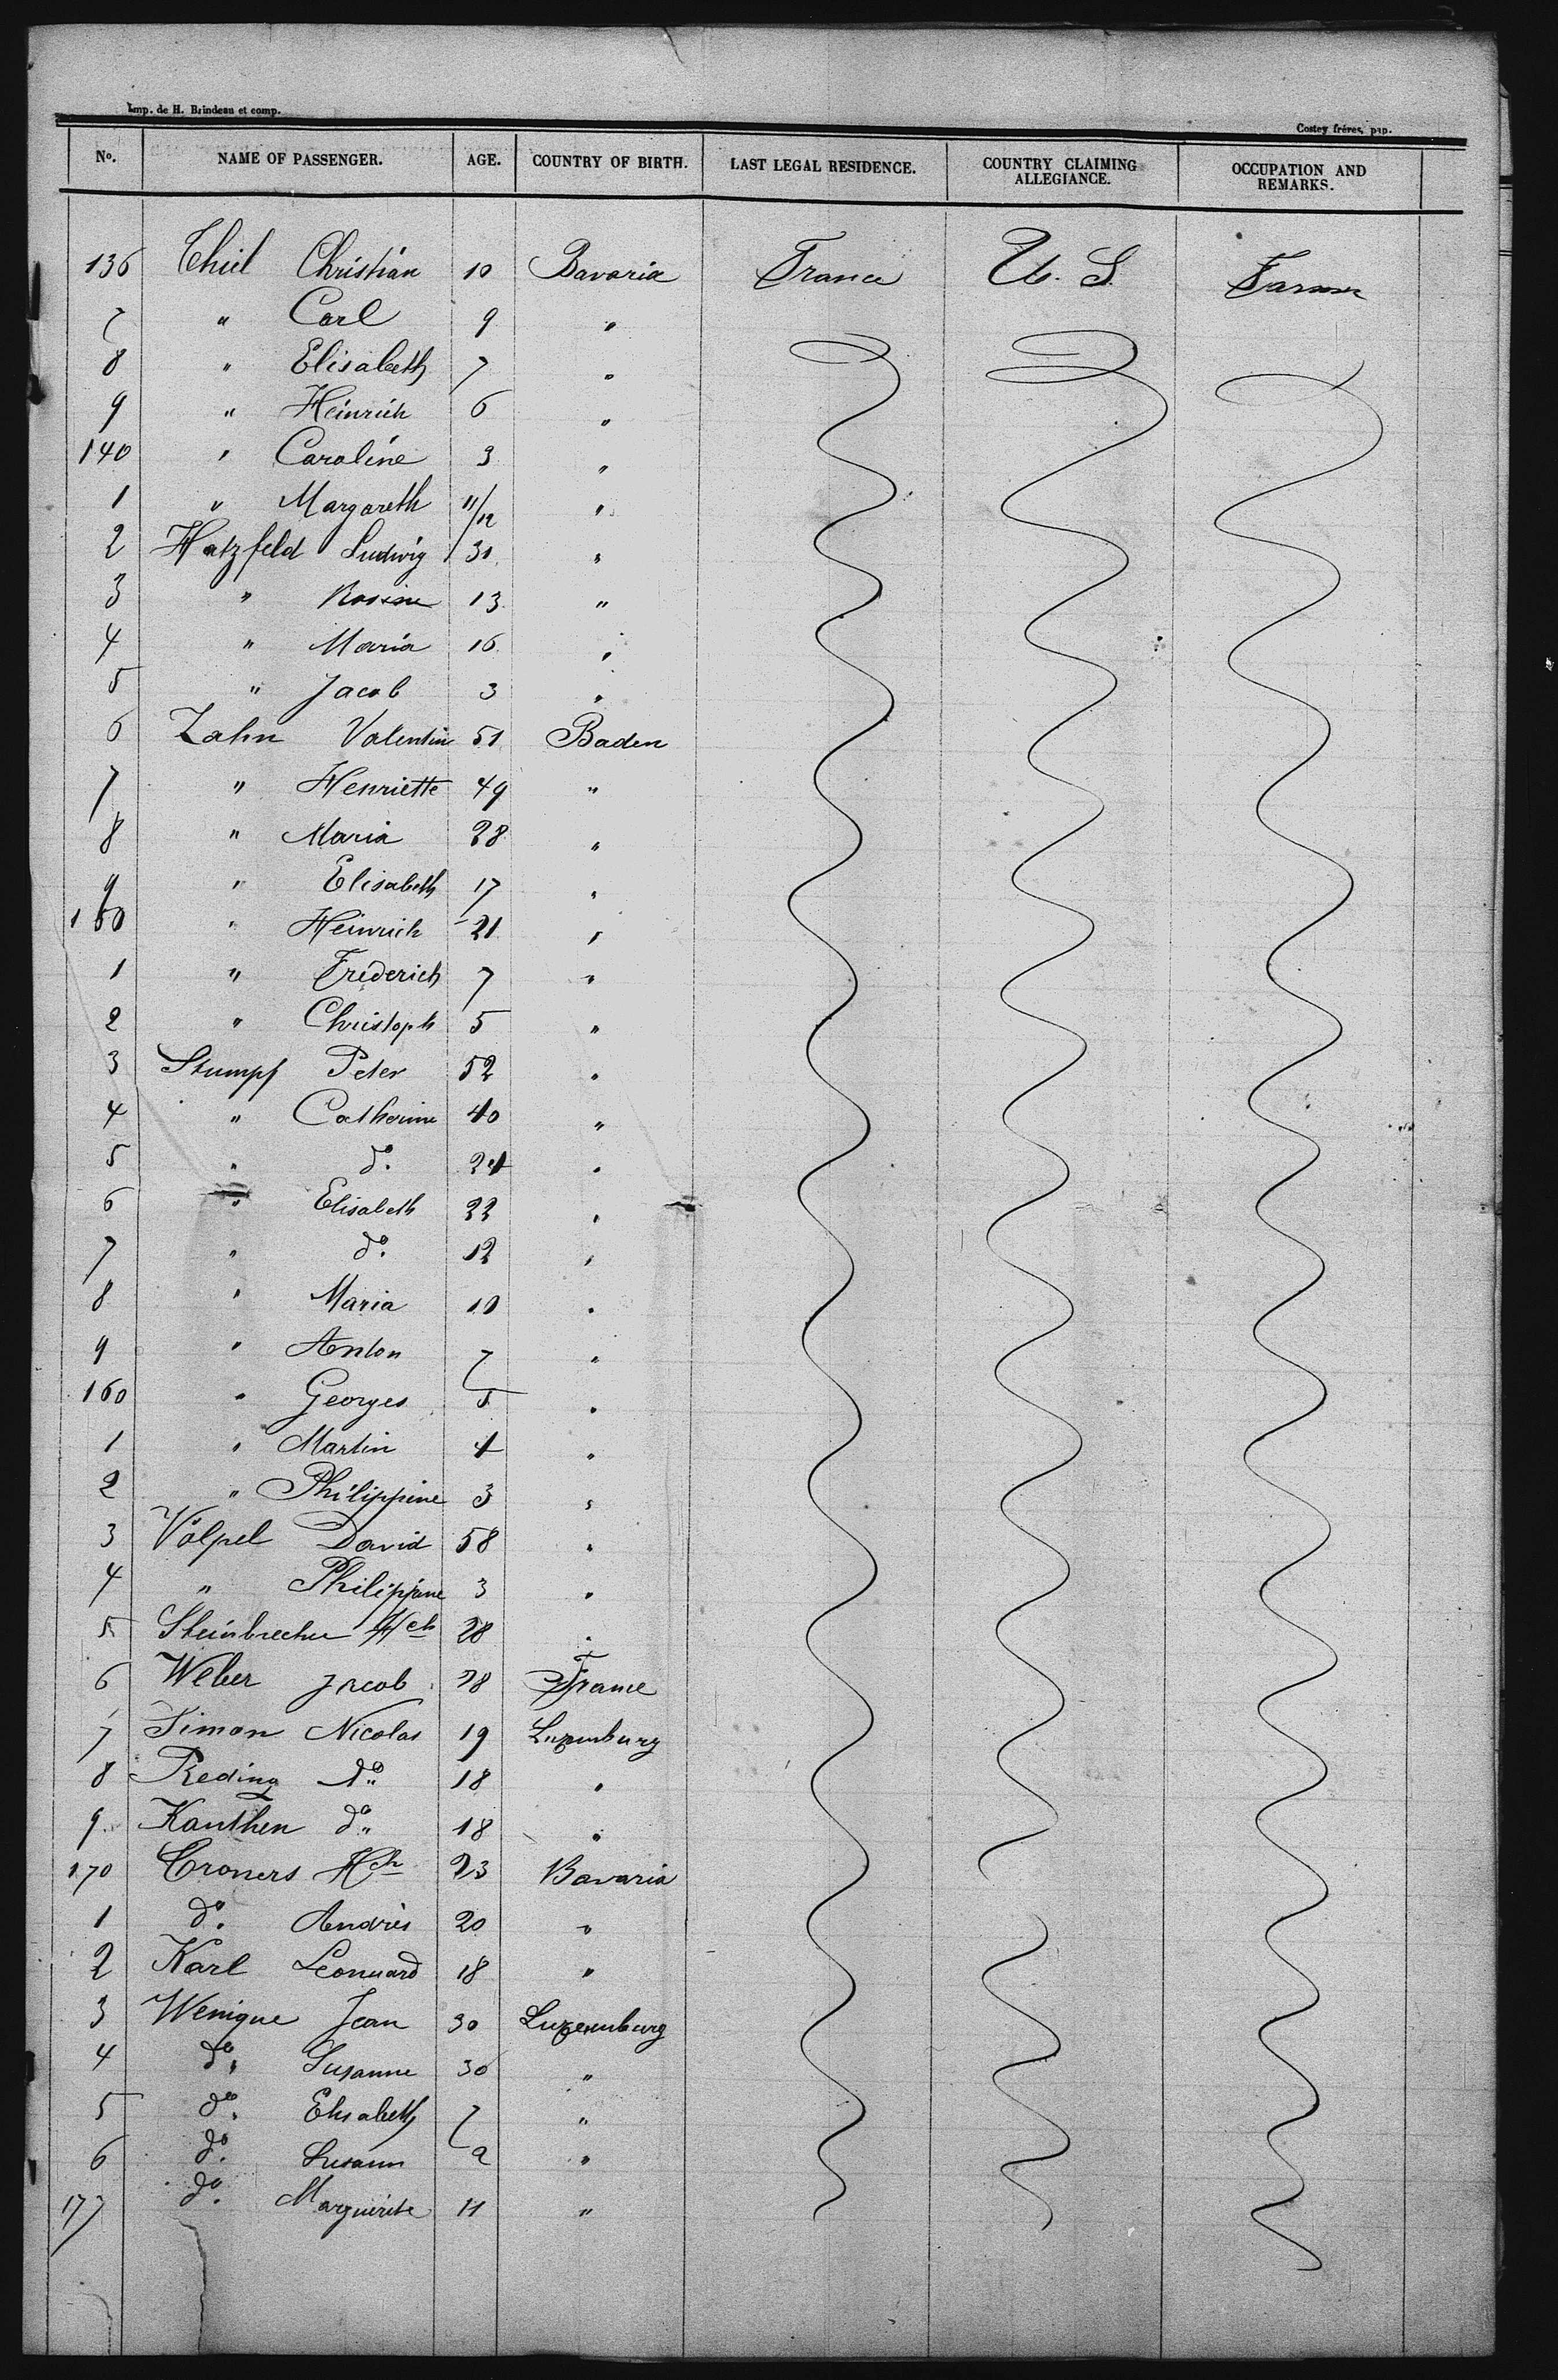 Imp. de H. Brindeau et comp.
Costey frères, pap.
No. NAME OF PASSENGER. AGE. COUNTRY OF BIRTH. LAST LEGAL RESIDENCE. COUNTRY CLAIMING ALLEGIANCE. OCCUPATION AND REMARKS.
136 Thiel Christian 10 Bavaria France U. S. Farmer
7 " Carl 9 "
8 " Elisabeth 7 "
9 " Heinrich 6 "
140 " Caroline 3 "
1 " Margareth 11/12 "
2 Hatzfeld Ludwig 31 "
3 " Rosine 13 "
4 " Maria 16 "
5 " Jacob 3 "
6 Zahn Valentin 51 Baden
7 " Henriette 49 "
8 " Maria 28 "
9 " Elisabeth 17 "
150 " Heinrich 21 "
1 " Fréderich 7 "
2 " Christoph 5 "
3 Stumpf Peter 52 "
4 " Catherine 40 "
5 " do. 24 "
6 " Elisabeth 22 "
7 " do. 12 "
8 " Maria 10 "
9 " Anton 7 "
160 " Georges 5 "
1 " Martin 4 "
2 " Philippine 3 "
3 Völpel David 58 "
4 " Philippine 3 "
5 Steinbrecher Hch 28 "
6 Weber Jacob 28 France
7 Simon Nicolas 19 Luxemburg
8 Reding do. 18 "
9 Kauthen do. 18 "
170 Croners Hch 23 Bavaria
1 do. Andrès 20 "
2 Karl Leonnard 18 "
3 Wenique Jean 30 Luxemburg
4 do. Susanne 30 "
5 do. Elisabeth 7 "
6 do. Susann "
177 do. Marguerite 11 "